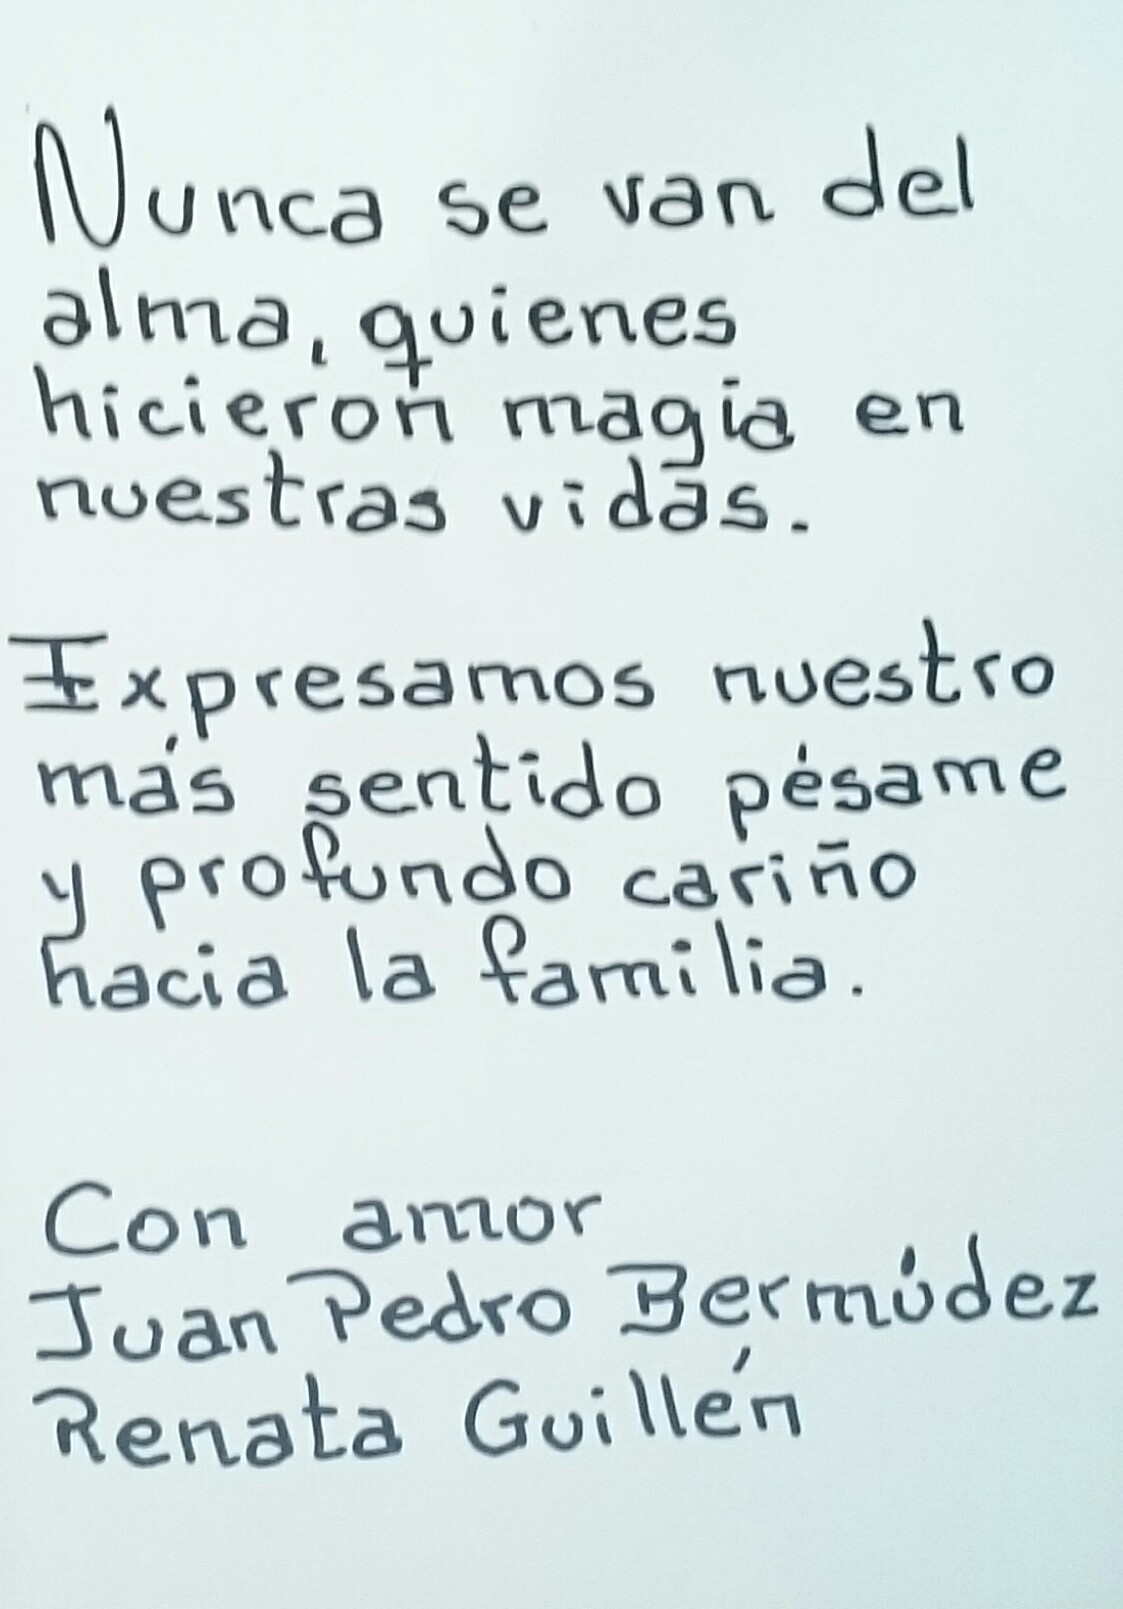 Nunca se van del
alma, quienes
hicieron magia en
nuestras vidas.
Expresamos nuestro
más sentido pésame
y profundo cariño
hacia la familia.
Con amor
Juan Pedro Bermúdez
Renata Guillén